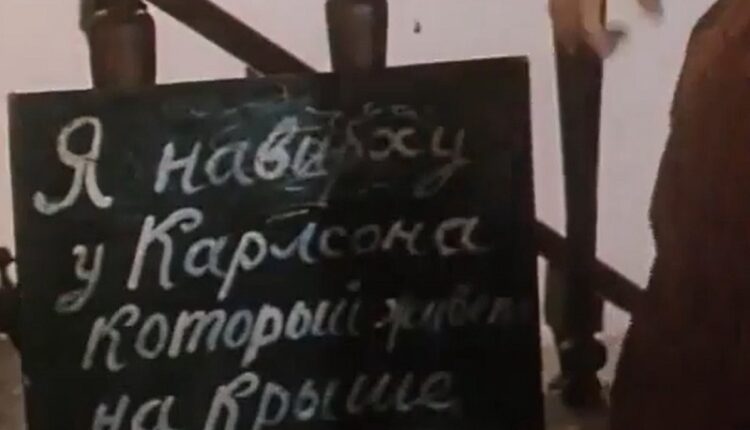 Я наверху
у Карлсона
который живет
на крыше